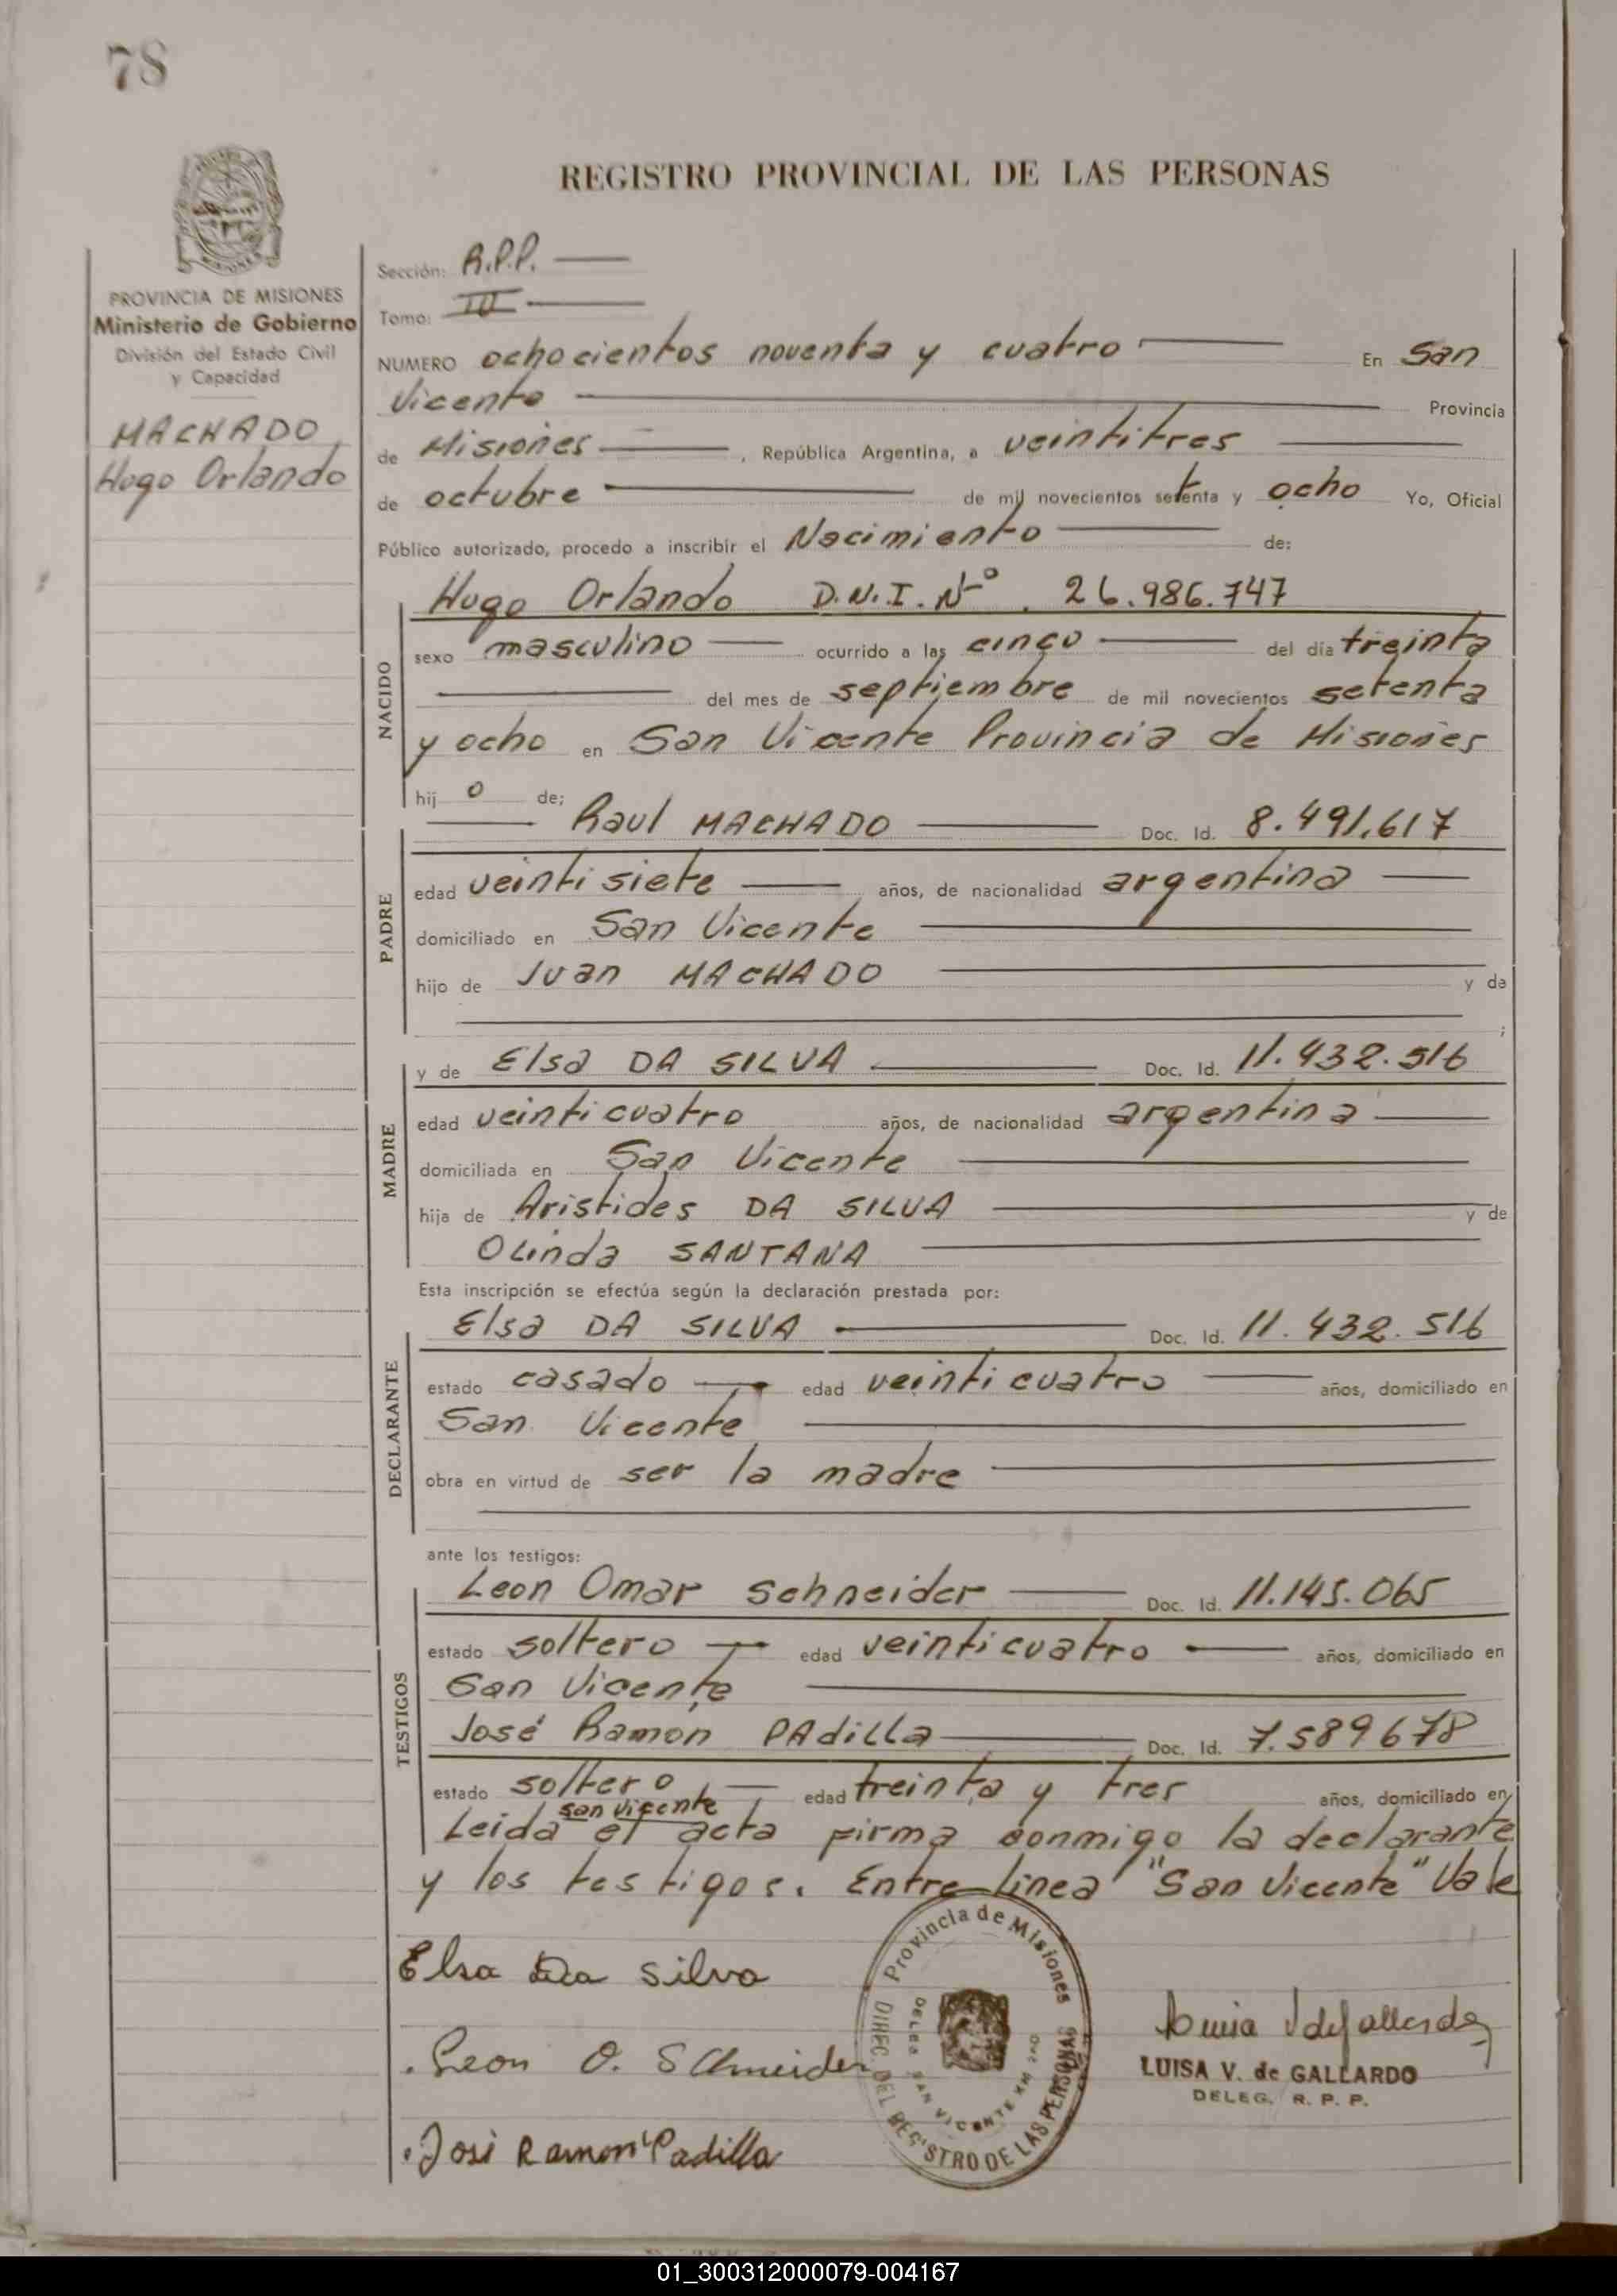 78
REGISTRO PROVINCIAL DE LAS PERSONAS
PROVINCIA DE MISIONES
Ministerio de Gobierno
División del Estado Civil
y Capacidad
MACHADO,
Hugo Orlando
Sección: R.P.P.
Tomo: III
NUMERO ochocientos noventa y cuatro En San
Vicente Provincia
de Misiones, República Argentina, a veintitres
de octubre de mil novecientos setenta y ocho Yo, Oficial
Público autorizado, procedo a inscribir el Nacimiento de:
Hugo Orlando D.N.I. Nº. 26.986.747
NACIDO
sexo masculino ocurrido a las cinco del día treinta
del mes de septiembre de mil novecientos setenta
y ocho en San Vicente Provincia de Misiones
hij o de;
Raul MACHADO Doc. Id. 8.491.617
PADRE
edad veintisiete años, de nacionalidad argentina
domiciliado en San Vicente
hijo de Juan MACHADO y de
;
y de Elsa DA SILVA Doc. Id. 11.432.516
MADRE
edad veinticuatro años, de nacionalidad argentina
domiciliada en San Vicente
hija de Aristides DA SILVA y de
Olinda SANTANA
Esta inscripción se efectúa según la declaración prestada por:
Elsa DA SILVA Doc. Id. 11.432.516
DECLARANTE
estado casado edad veinticuatro años, domiciliado en
San Vicente
obra en virtud de ser la madre
ante los testigos:
Leon Omar Schneider Doc. Id. 11.145.065
TESTIGOS
estado soltero edad veinticuatro años, domiciliado en
San Vicente
José Ramón PAdilla Doc. Id. 7.589678
estado soltero edad treinta y tres años, domiciliado en
san vicente
Leida el acta firma conmigo la declarante
y los testigos. Entre linea "San Vicente" Vale
Elsa Da Silva
Leon O. Schneider
José Ramon Padilla
Provincia de Misiones
DIREC. DEL REGISTRO DE LAS PERSONAS
DELEG. SAN VICENTE KM
LUISA V. de GALLARDO
DELEG. R. P. P.
01_300312000079-004167